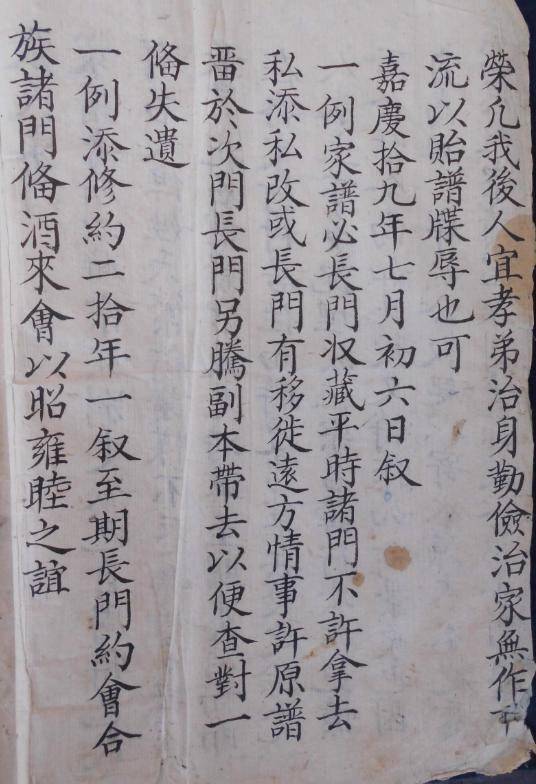 榮凢我後人宜孝弟治身勤儉治家無作下
流以貽譜牒辱也可
嘉慶拾九年七月初六日叙
一例家譜必長門収藏平時諸門不許拿去
私添私改或長門有移徙遠方情事許原譜
畱於次門長門另騰副本帶去以便查對一
偹失遺
一例添修約二拾年一叙至期長門約會合
族諸門偹酒來會以昭雍睦之誼